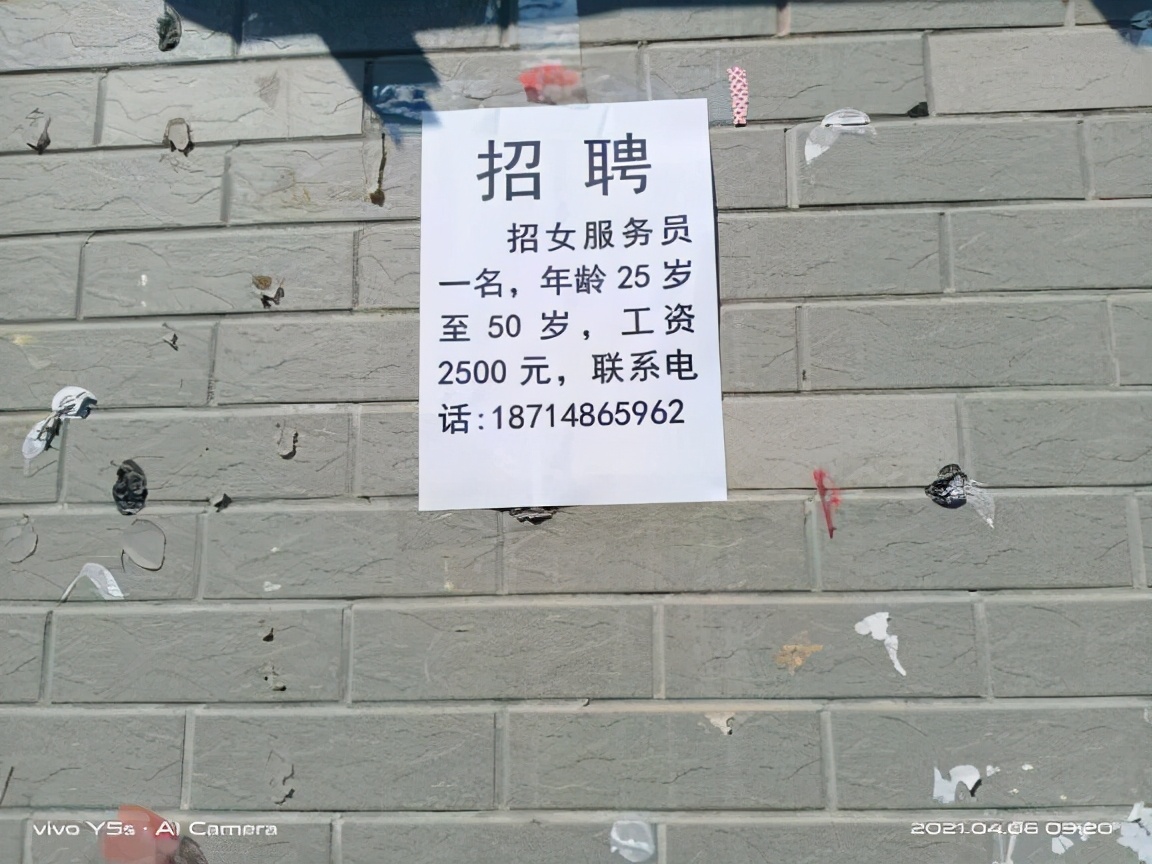 招聘
招女服务员
一名，年龄25岁
至50岁，工资
2500元，联系电
话:18714865962
vivo Y5s · AI Camera
2021.04.06 09:20